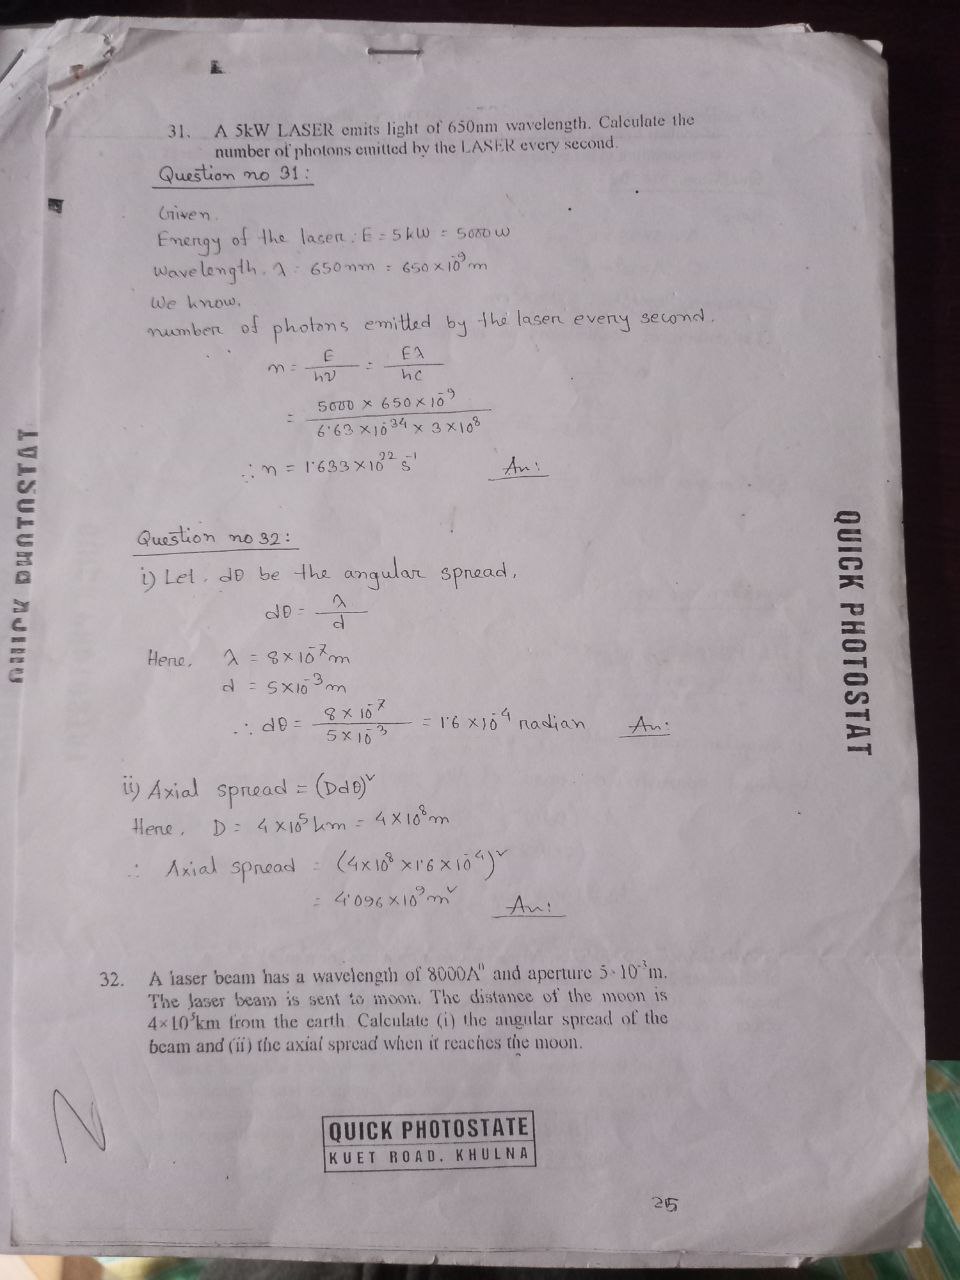 31. A 5kW LASER emits light of 650nm wavelength. Calculate the
number of photons emitted by the LASER every second.
Question no 31:
Given.
Energy of the laser: E = 5kW = 5000 W
Wavelength, λ = 650 nm = 650 × 10⁻⁹ m
We know,
number of photons emitted by the laser every second.
n = E/hν = Eλ/hc
= 5000 × 650 × 10⁻⁹ / 6.63 × 10⁻³⁴ × 3 × 10⁸
∴ n = 1.633 × 10²² s⁻¹ An:
Question no 32:
i) Let, dθ be the angular spread,
dθ = λ/d
Here, λ = 8 × 10⁻⁷ m
d = 5 × 10⁻³ m
∴ dθ = 8 × 10⁻⁷ / 5 × 10⁻³ = 1.6 × 10⁻⁴ radian An:
ii) Axial spread = (Ddθ)²
Here, D = 4 × 10⁵ km = 4 × 10⁸ m
∴ Axial spread = (4 × 10⁸ × 1.6 × 10⁻⁴)²
= 4.096 × 10⁹ m² An:
32. A laser beam has a wavelength of 8000A° and aperture 5×10⁻³m.
The laser beam is sent to moon. The distance of the moon is
4×10⁵km from the earth. Calculate (i) the angular spread of the
beam and (ii) the axial spread when it reaches the moon.
N
QUICK PHOTOSTATE
KUET ROAD. KHULNA
215
QUICK PHOTOSTAT
QUICK PHOTOSTAT